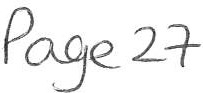 Page 27